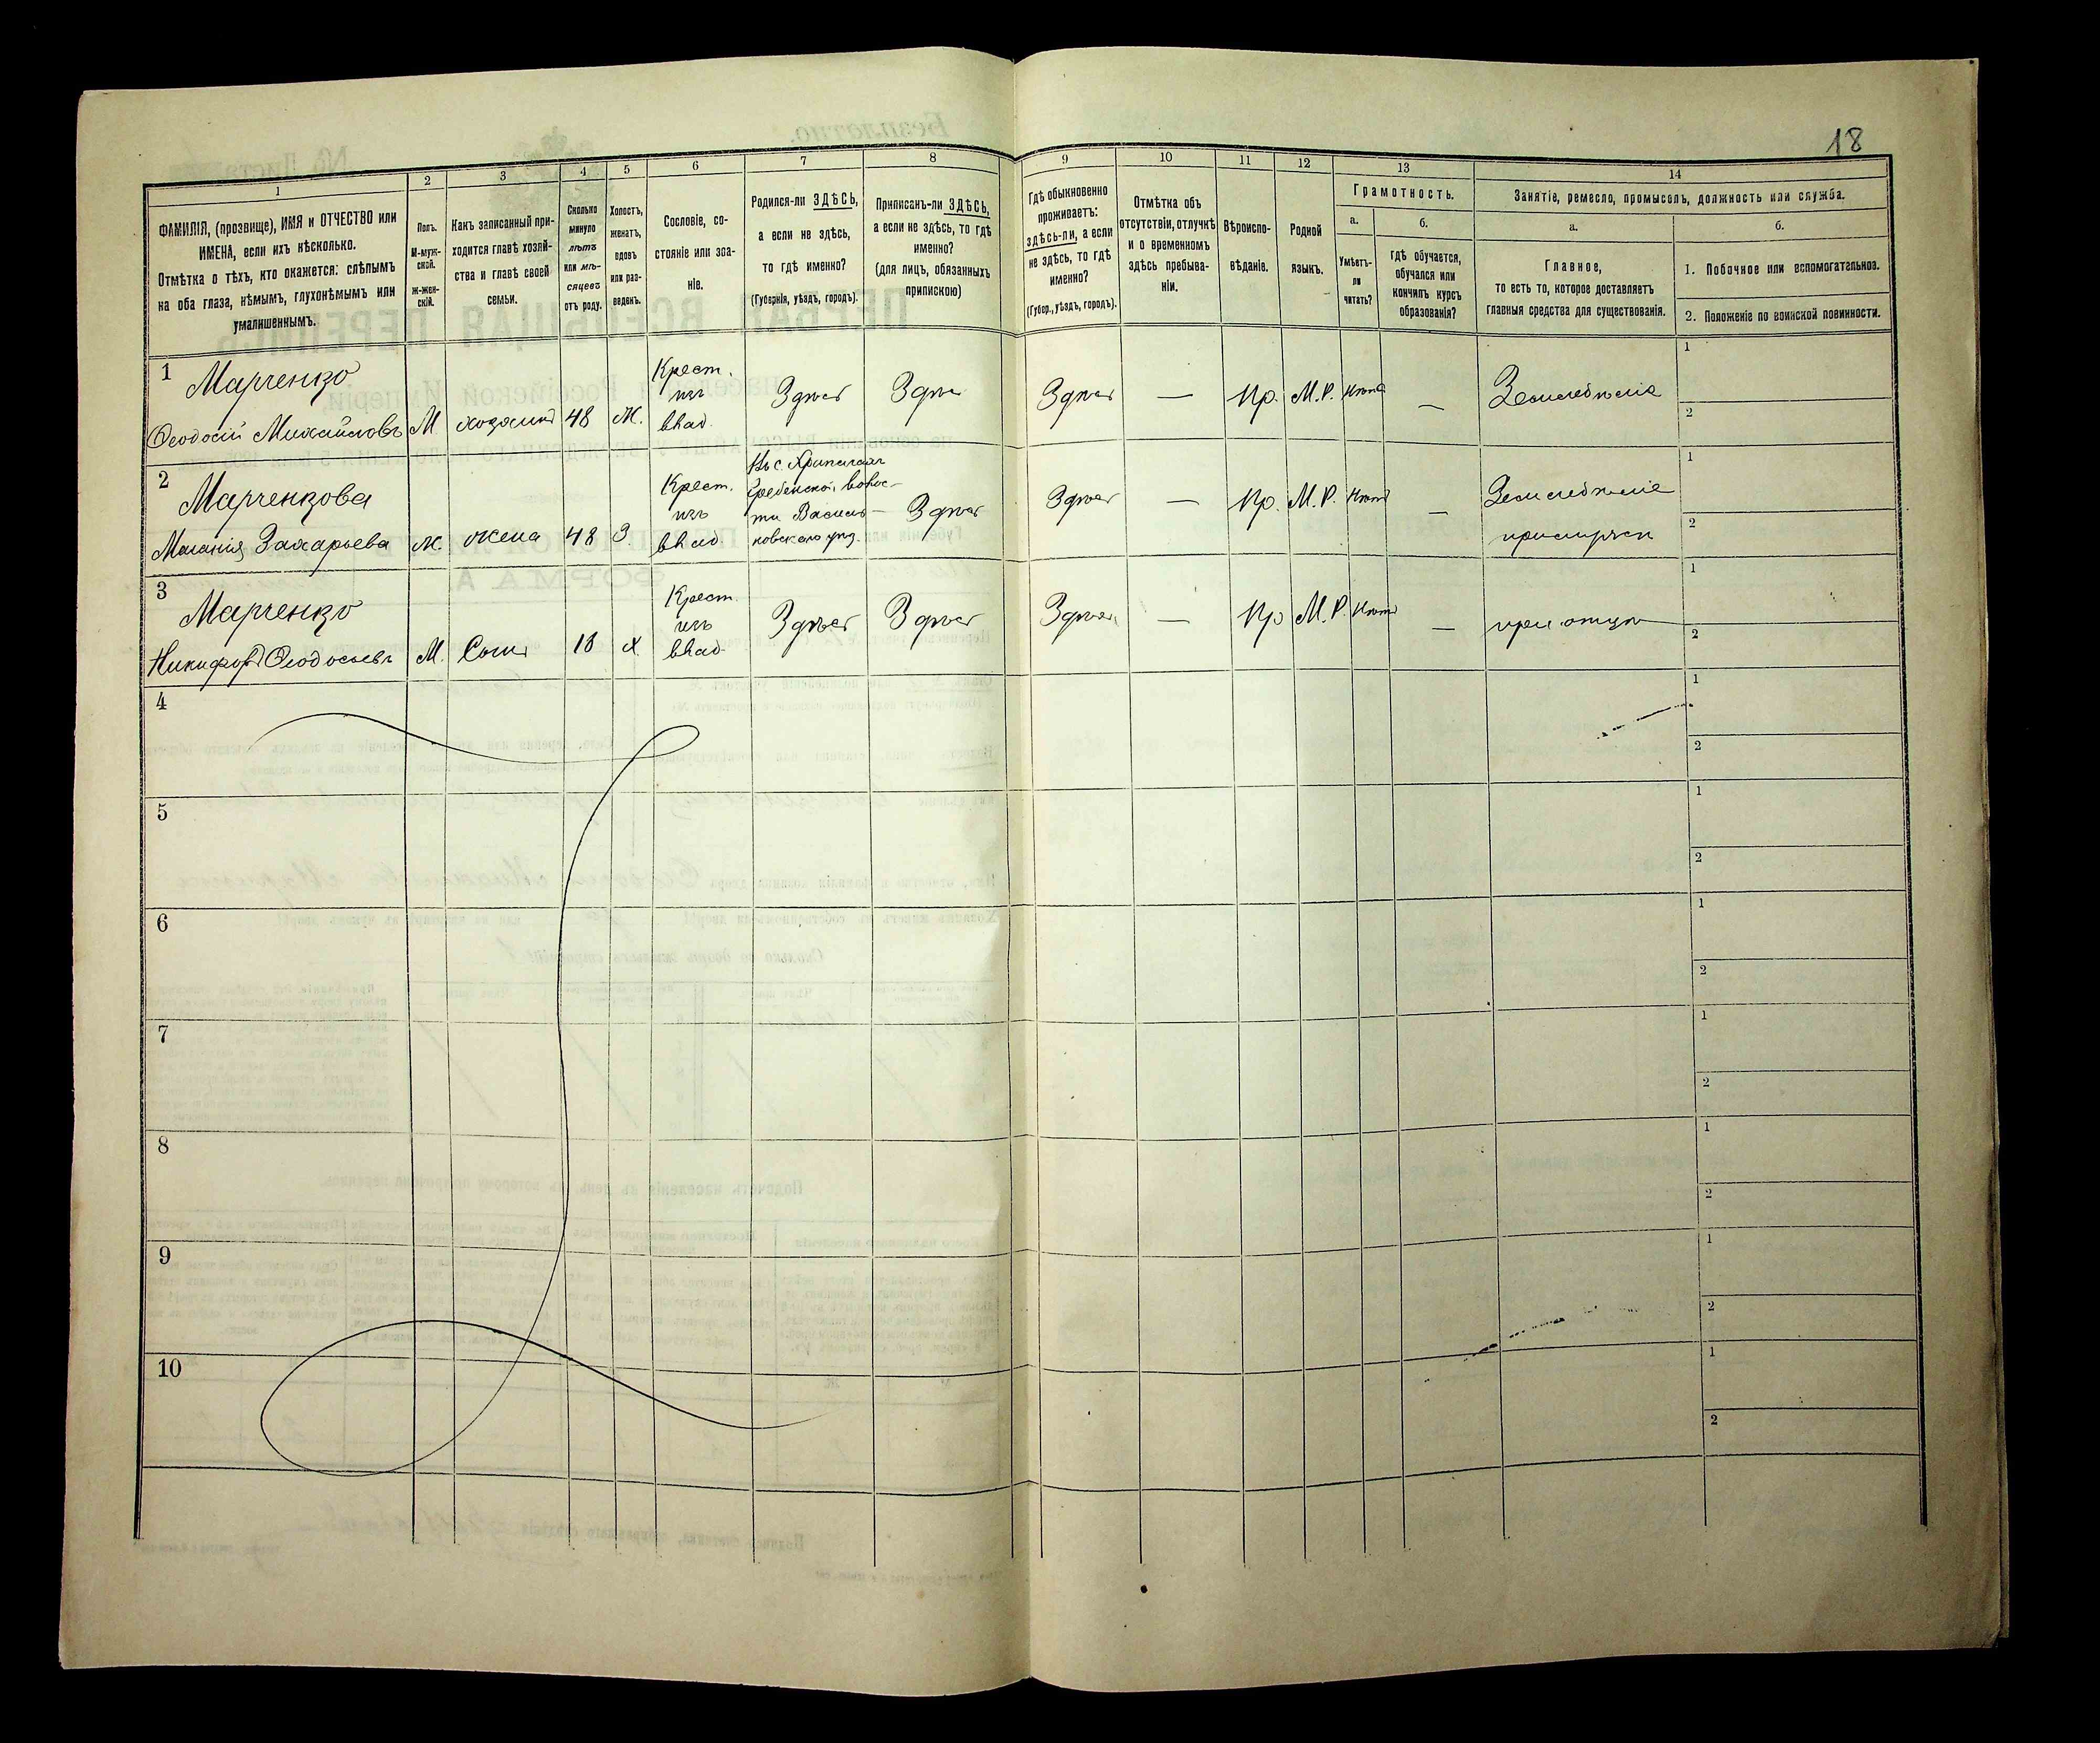 18
1 2 3 4 5 6 7 8 9 10 11 12 13 14
ФАМИЛІЯ, (прозвище), ИМЯ и ОТЧЕСТВО или
ИМЕНА, если ихъ нѣсколько.
Отмѣтка о тѣхъ, кто окажется: слѣпымъ
на оба глаза, нѣмымъ, глухонѣмымъ или
умалишеннымъ.
Полъ.
М-муж-
ской.
Ж-жен-
скій.
Какъ записанный при-
ходится главѣ хозяй-
ства и главѣ своей
семьи.
Сколько
минуло
лѣтъ
или мѣ-
сяцевъ
отъ роду.
Холостъ,
женатъ,
вдовъ
или раз-
веденъ.
Сословіе, со-
стояніе или зва-
ніе.
Родился-ли ЗДѢСЬ,
а если не здѣсь,
то гдѣ именно?
(Губернія, уѣздъ, городъ).
Приписанъ-ли ЗДѢСЬ,
а если не здѣсь, то гдѣ
именно?
(для лицъ, обязанныхъ
припискою)
Гдѣ обыкновенно
проживаетъ:
здѣсь-ли, а если
не здѣсь, то гдѣ
именно?
(Губер., уѣздъ, городъ).
Отмѣтка объ
отсутствіи, отлучкѣ
и о временномъ
здѣсь пребыва-
ніи.
Вѣроиспо-
вѣданіе.
Родной
языкъ.
Грамотность.
а.
Умѣетъ-
ли
читать?
б.
гдѣ обучается,
обучался или
кончилъ курсъ
образованія?
Занятіе, ремесло, промыселъ, должность или служба.
а.
Главное,
то есть то, которое доставляетъ
главныя средства для существованія.
б.
1. Побочное или вспомогательное.
2. Положеніе по воинской повинности.
1
Марченко
Ѳеодосій Михайловъ М. хозяинъ 48 Ж.
Крест.
изъ
влад.
Здѣсь Здѣсь Здѣсь — Пр. М.Р. Нѣтъ — Земледѣліе
1
2
2
Марченкова
Маланія Захарьева Ж. жена 48 З.
Крест.
изъ
влад.
Гребенской волос-
ти Василь-
ковскаго уѣз.
Здѣсь Здѣсь — Пр. М.Р. Нѣтъ — Земледѣліе
при мужѣ
1
2
3
Марченко
Никифоръ Ѳеодосіевъ М. Сынъ 18 Х.
Крест.
изъ
влад.
Здѣсь Здѣсь Здѣсь — Пр М.Р. Нѣтъ — при отцѣ
1
2
4
1
2
5
1
2
6
1
2
7
1
2
8
1
2
9
1
2
10
1
2